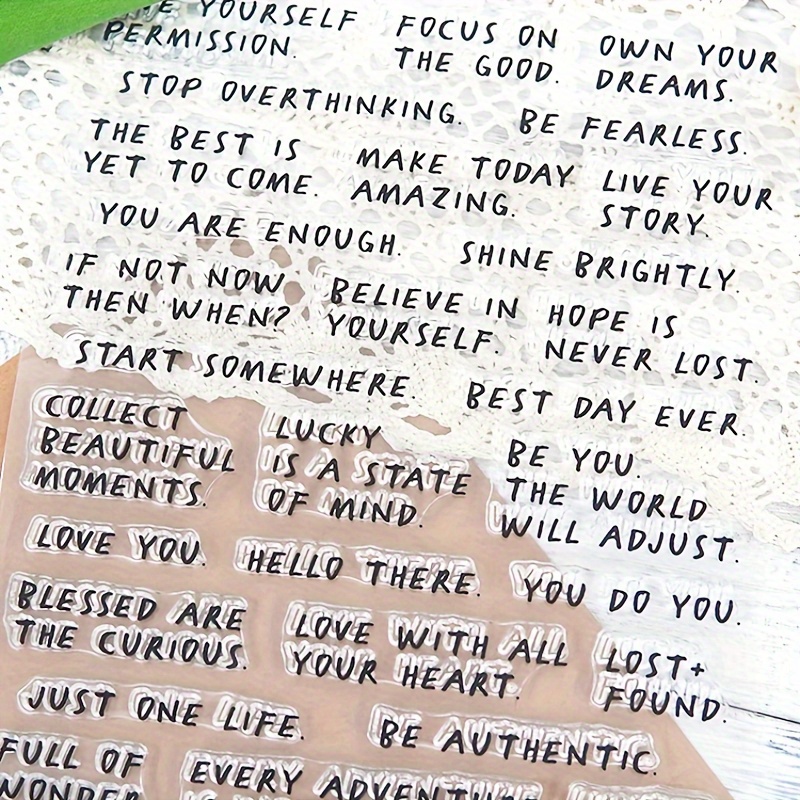 YOURSELF
PERMISSION.
FOCUS ON
THE GOOD.
OWN YOUR
DREAMS.
STOP OVERTHINKING.
BE FEARLESS.
THE BEST IS
YET TO COME.
MAKE TODAY
AMAZING.
LIVE YOUR
STORY.
YOU ARE ENOUGH.
SHINE BRIGHTLY.
IF NOT NOW
THEN WHEN?
BELIEVE IN
YOURSELF.
HOPE IS
NEVER LOST.
START SOMEWHERE.
BEST DAY EVER.
COLLECT
BEAUTIFUL
MOMENTS.
LUCKY
IS A STATE
OF MIND.
BE YOU.
THE WORLD
WILL ADJUST.
LOVE YOU.
HELLO THERE.
YOU DO YOU.
BLESSED ARE
THE CURIOUS.
LOVE WITH ALL
YOUR HEART.
LOST+
FOUND.
JUST ONE LIFE.
BE AUTHENTIC.
FULL OF
WONDER
EVERY ADVENTURE